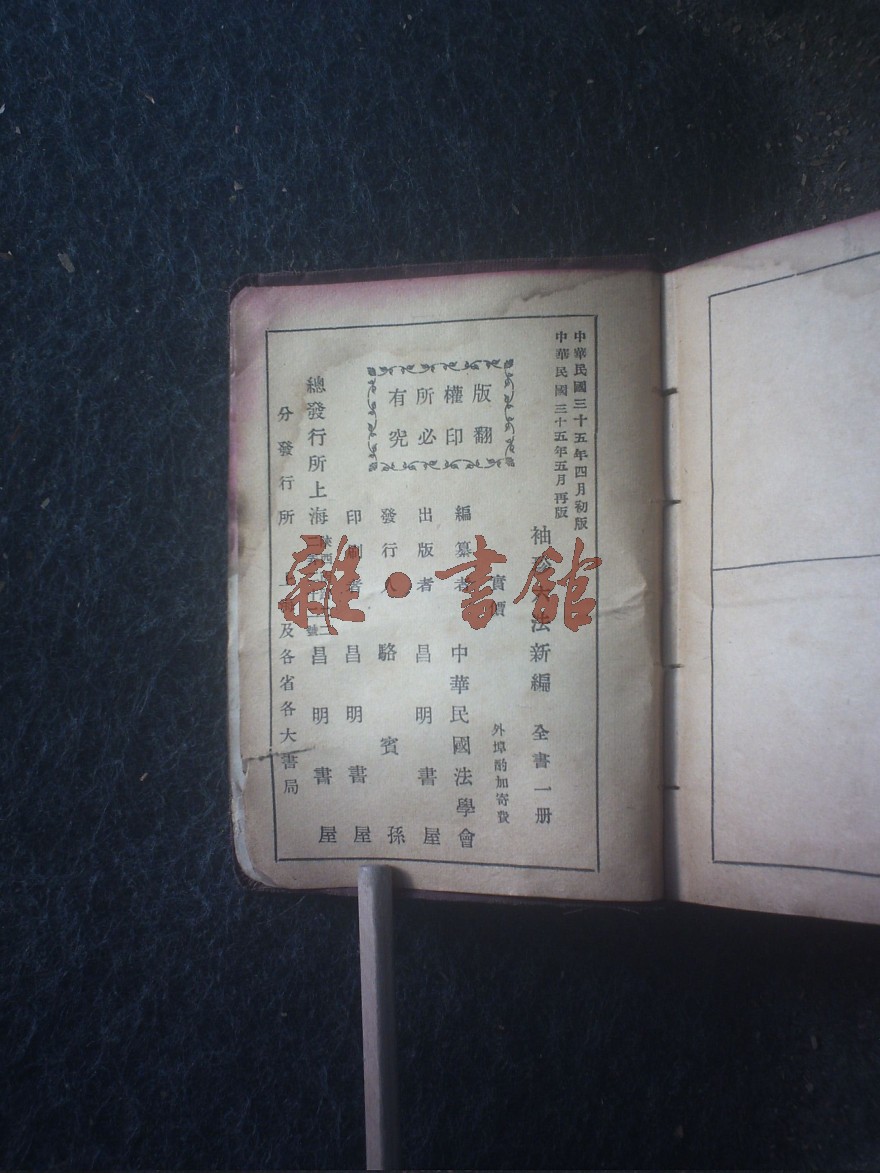 中華民國三十五年四月初版
中華民國三十五年五月再版
袖珍六法新編 全書一册
實價 外埠酌加寄費
版權所有
翻印必究
編纂者 中華民國法學會
出版者 昌明書屋
發行人 駱賓孫
印刷者 昌明書屋
總發行所上海陝西 號昌明書屋
分發行所 上海及各省各大書局
雜·書館